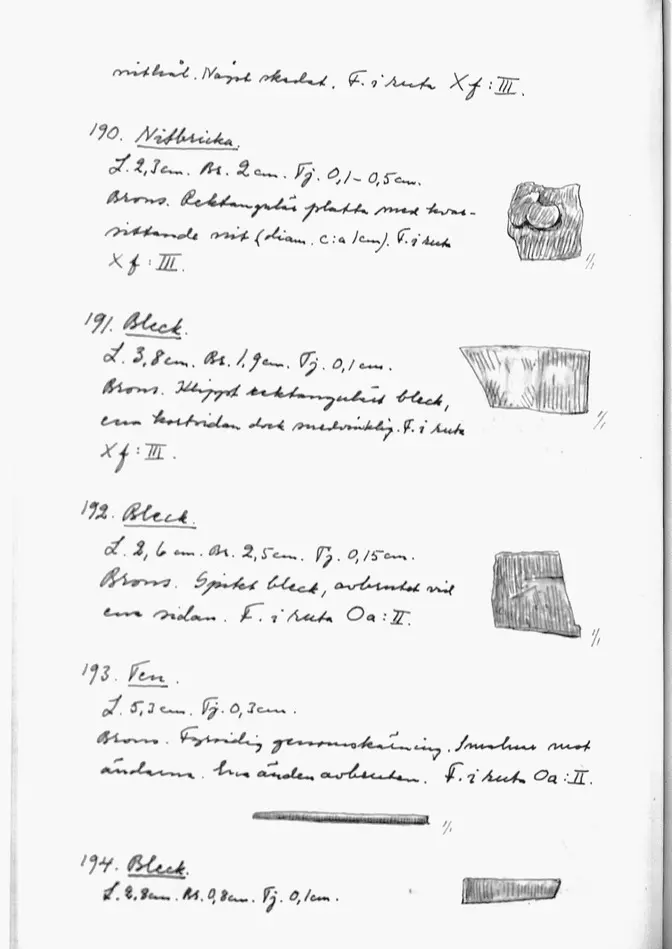 nithål. Något skadat. F. i ruta Xf:III.
190. Nitbricka.
L. 2,3cm. Br. 2cm. Tj. 0,1-0,5cm.
Brons. Rektangulär platta med kvar-
sittande nit (diam. c:a 1cm). F. i ruta
Xf:III.
1/1
191. Bleck.
L. 3,8cm. Br. 1,9cm. Tj. 0,1cm.
Brons. Klippt rektangulärt bleck,
ena kortsidan dock snedvinklig. F. i ruta
Xf:III.
1/1
192. Bleck.
L. 2,6cm. Br. 2,5cm. Tj. 0,15cm.
Brons. bleck, avbrutet vid
ena sidan. F. i ruta Oa:II.
1/1
193. Ten.
L. 5,3cm. Tj. 0,3cm.
Brons. Fyrsidig genomskärning. Smalnar mot
ändarna. Ena änden avbruten. F. i ruta Oa:II.
1/1
194. Bleck.
L. 2,8cm. Br. 0,8cm. Tj. 0,1cm.